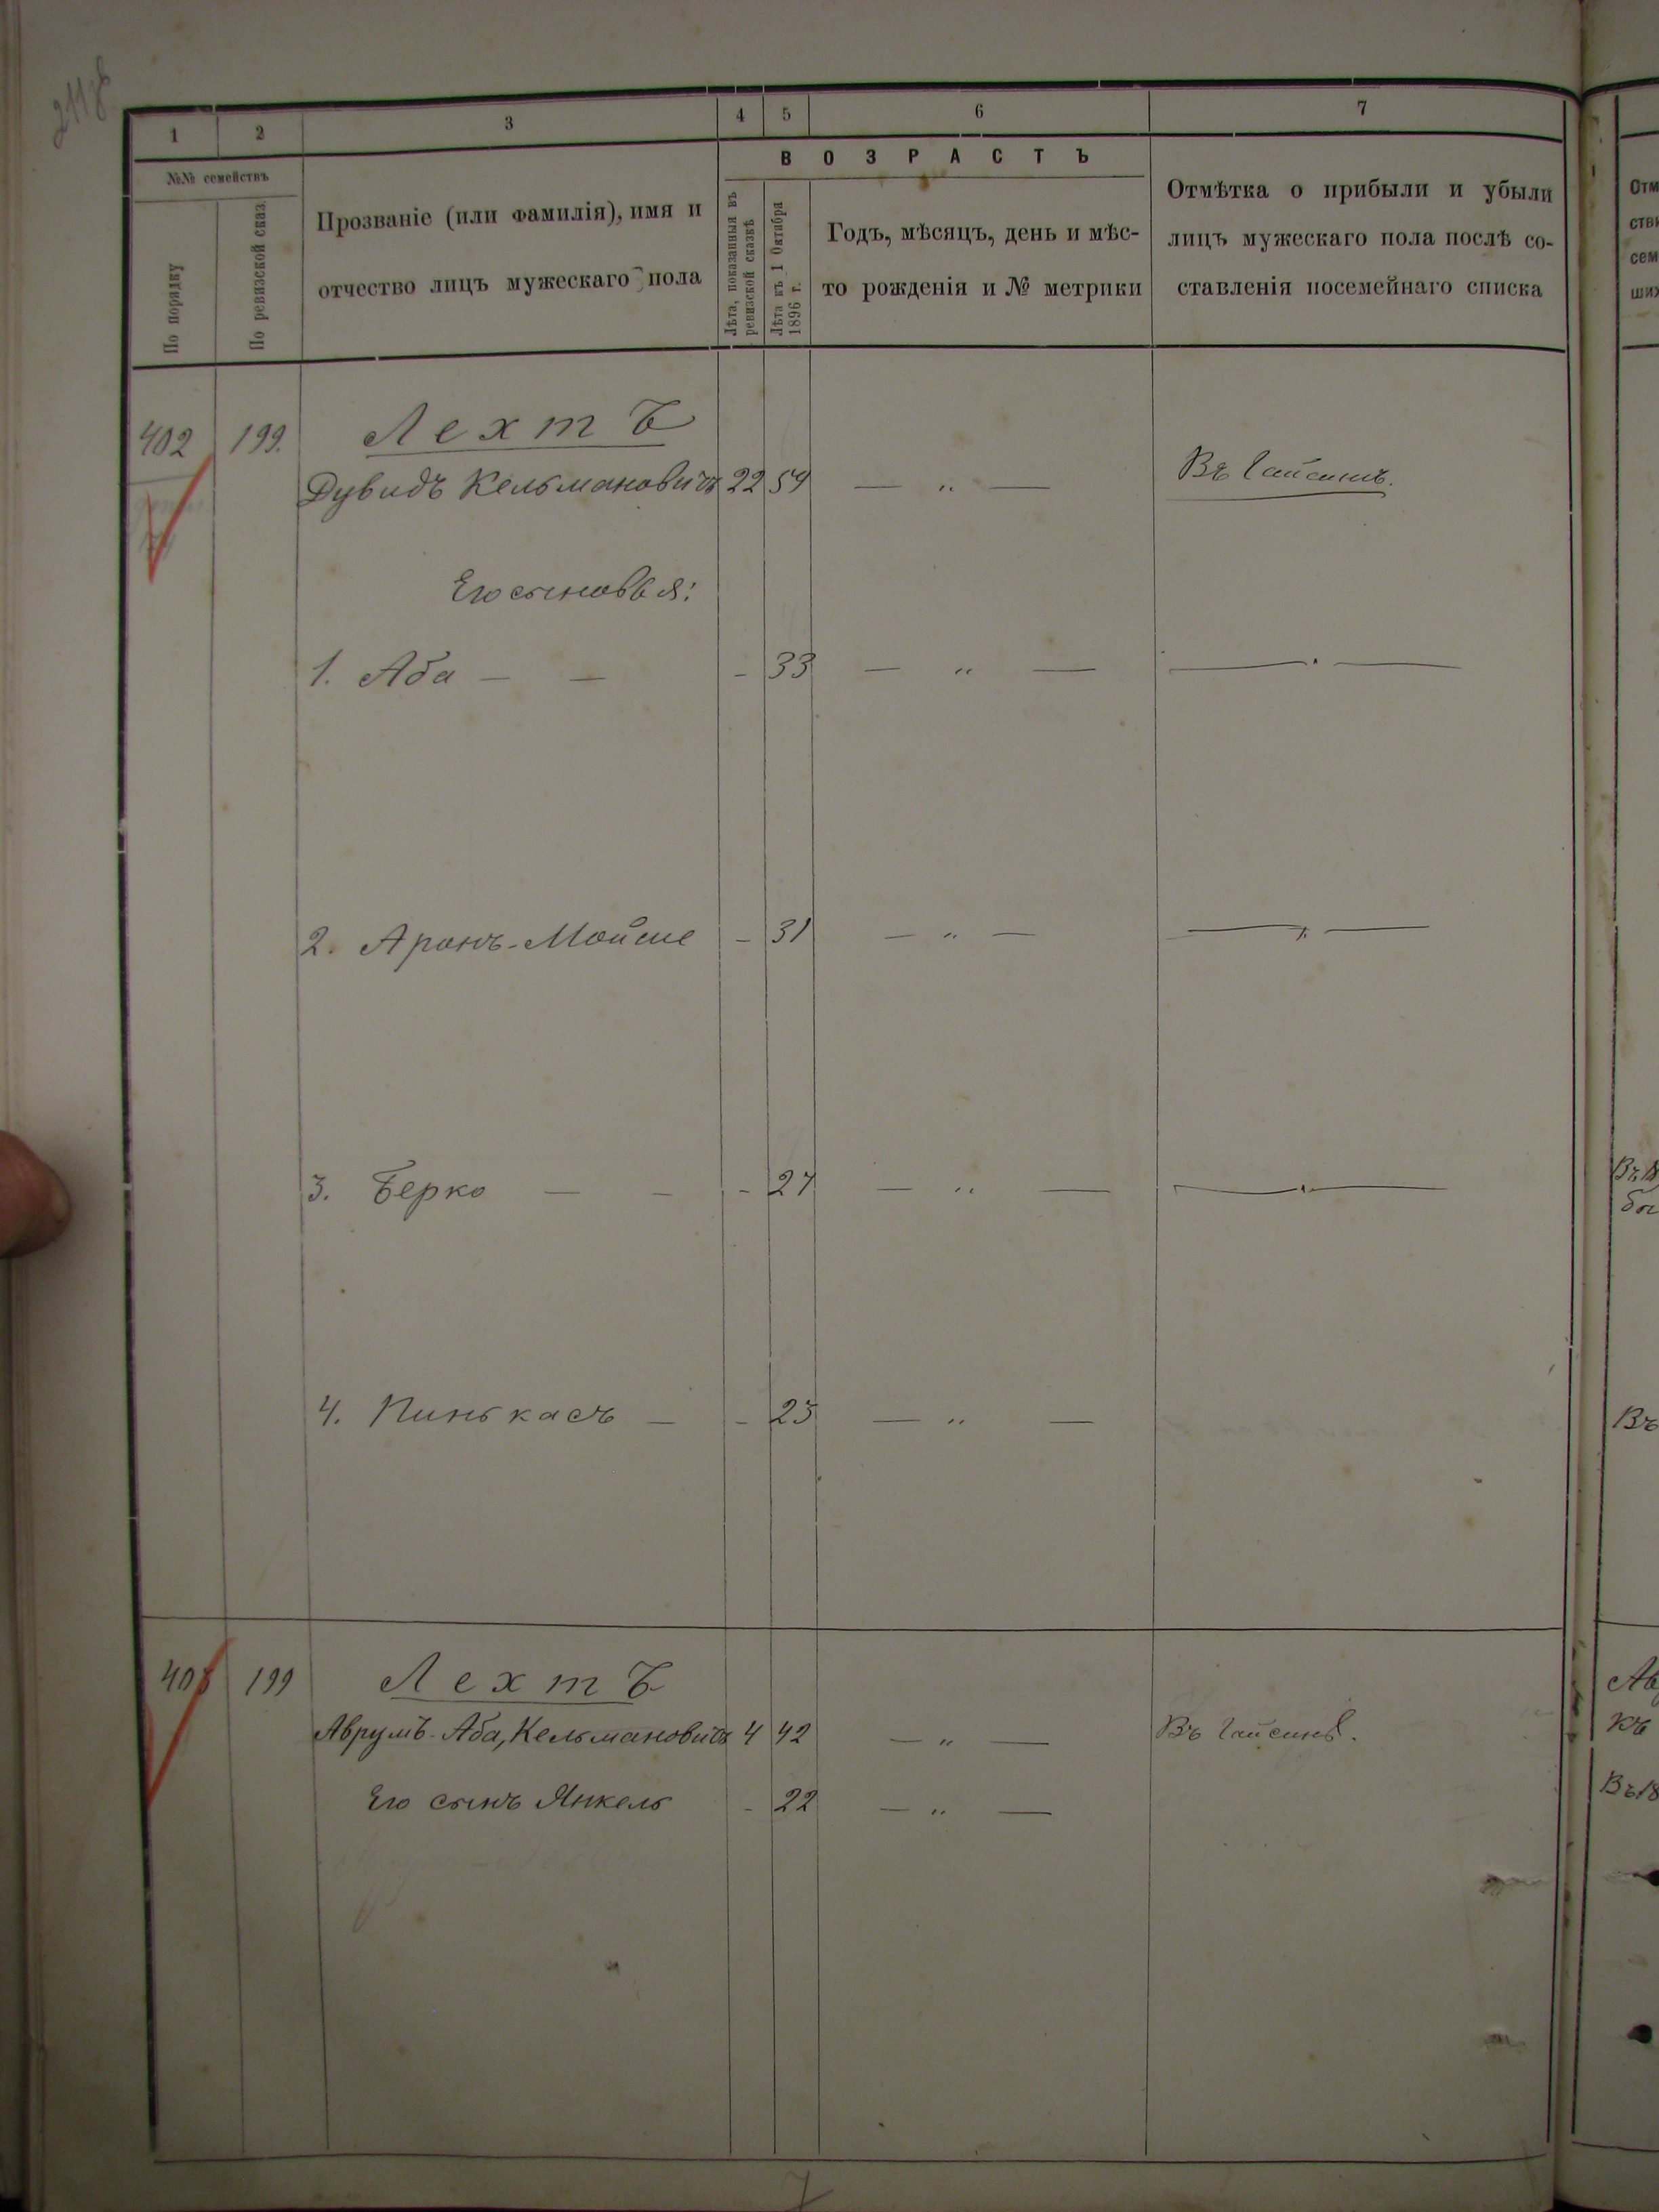 211об
1 2 3 4 5 6 7
№№ семействъ
По порядку
По ревизской сказ.
Прозваніе (или фамилія), имя и
отчество лицъ мужескаго пола
ВОЗРАСТЪ
Лѣта, показанныя въ
ревизской сказкѣ
Лѣта къ 1 Октября
1896 г.
Годъ, мѣсяцъ, день и мѣс-
то рожденія и № метрики
Отмѣтка о прибыли и убыли
лицъ мужескаго пола послѣ со-
ставленія посемейнаго списка
402 199. Лехтъ
Дувидъ Кельмановичъ 22 54 — „ — Въ Гайсинѣ.
Его сыновья:
1. Аба — — - 33 — „ — — „ —
2. Аронъ-Мойше - 31 — „ — — „ —
3. Берко — — - 27 — „ — — „ —
4. Пинькасъ — - 25 — „ —
403 199 Лехтъ
Аврумъ-Аба, Кельмановичъ 4 42 — „ — Въ Гайсинѣ.
Его сынъ Янкель - 22 — „ —